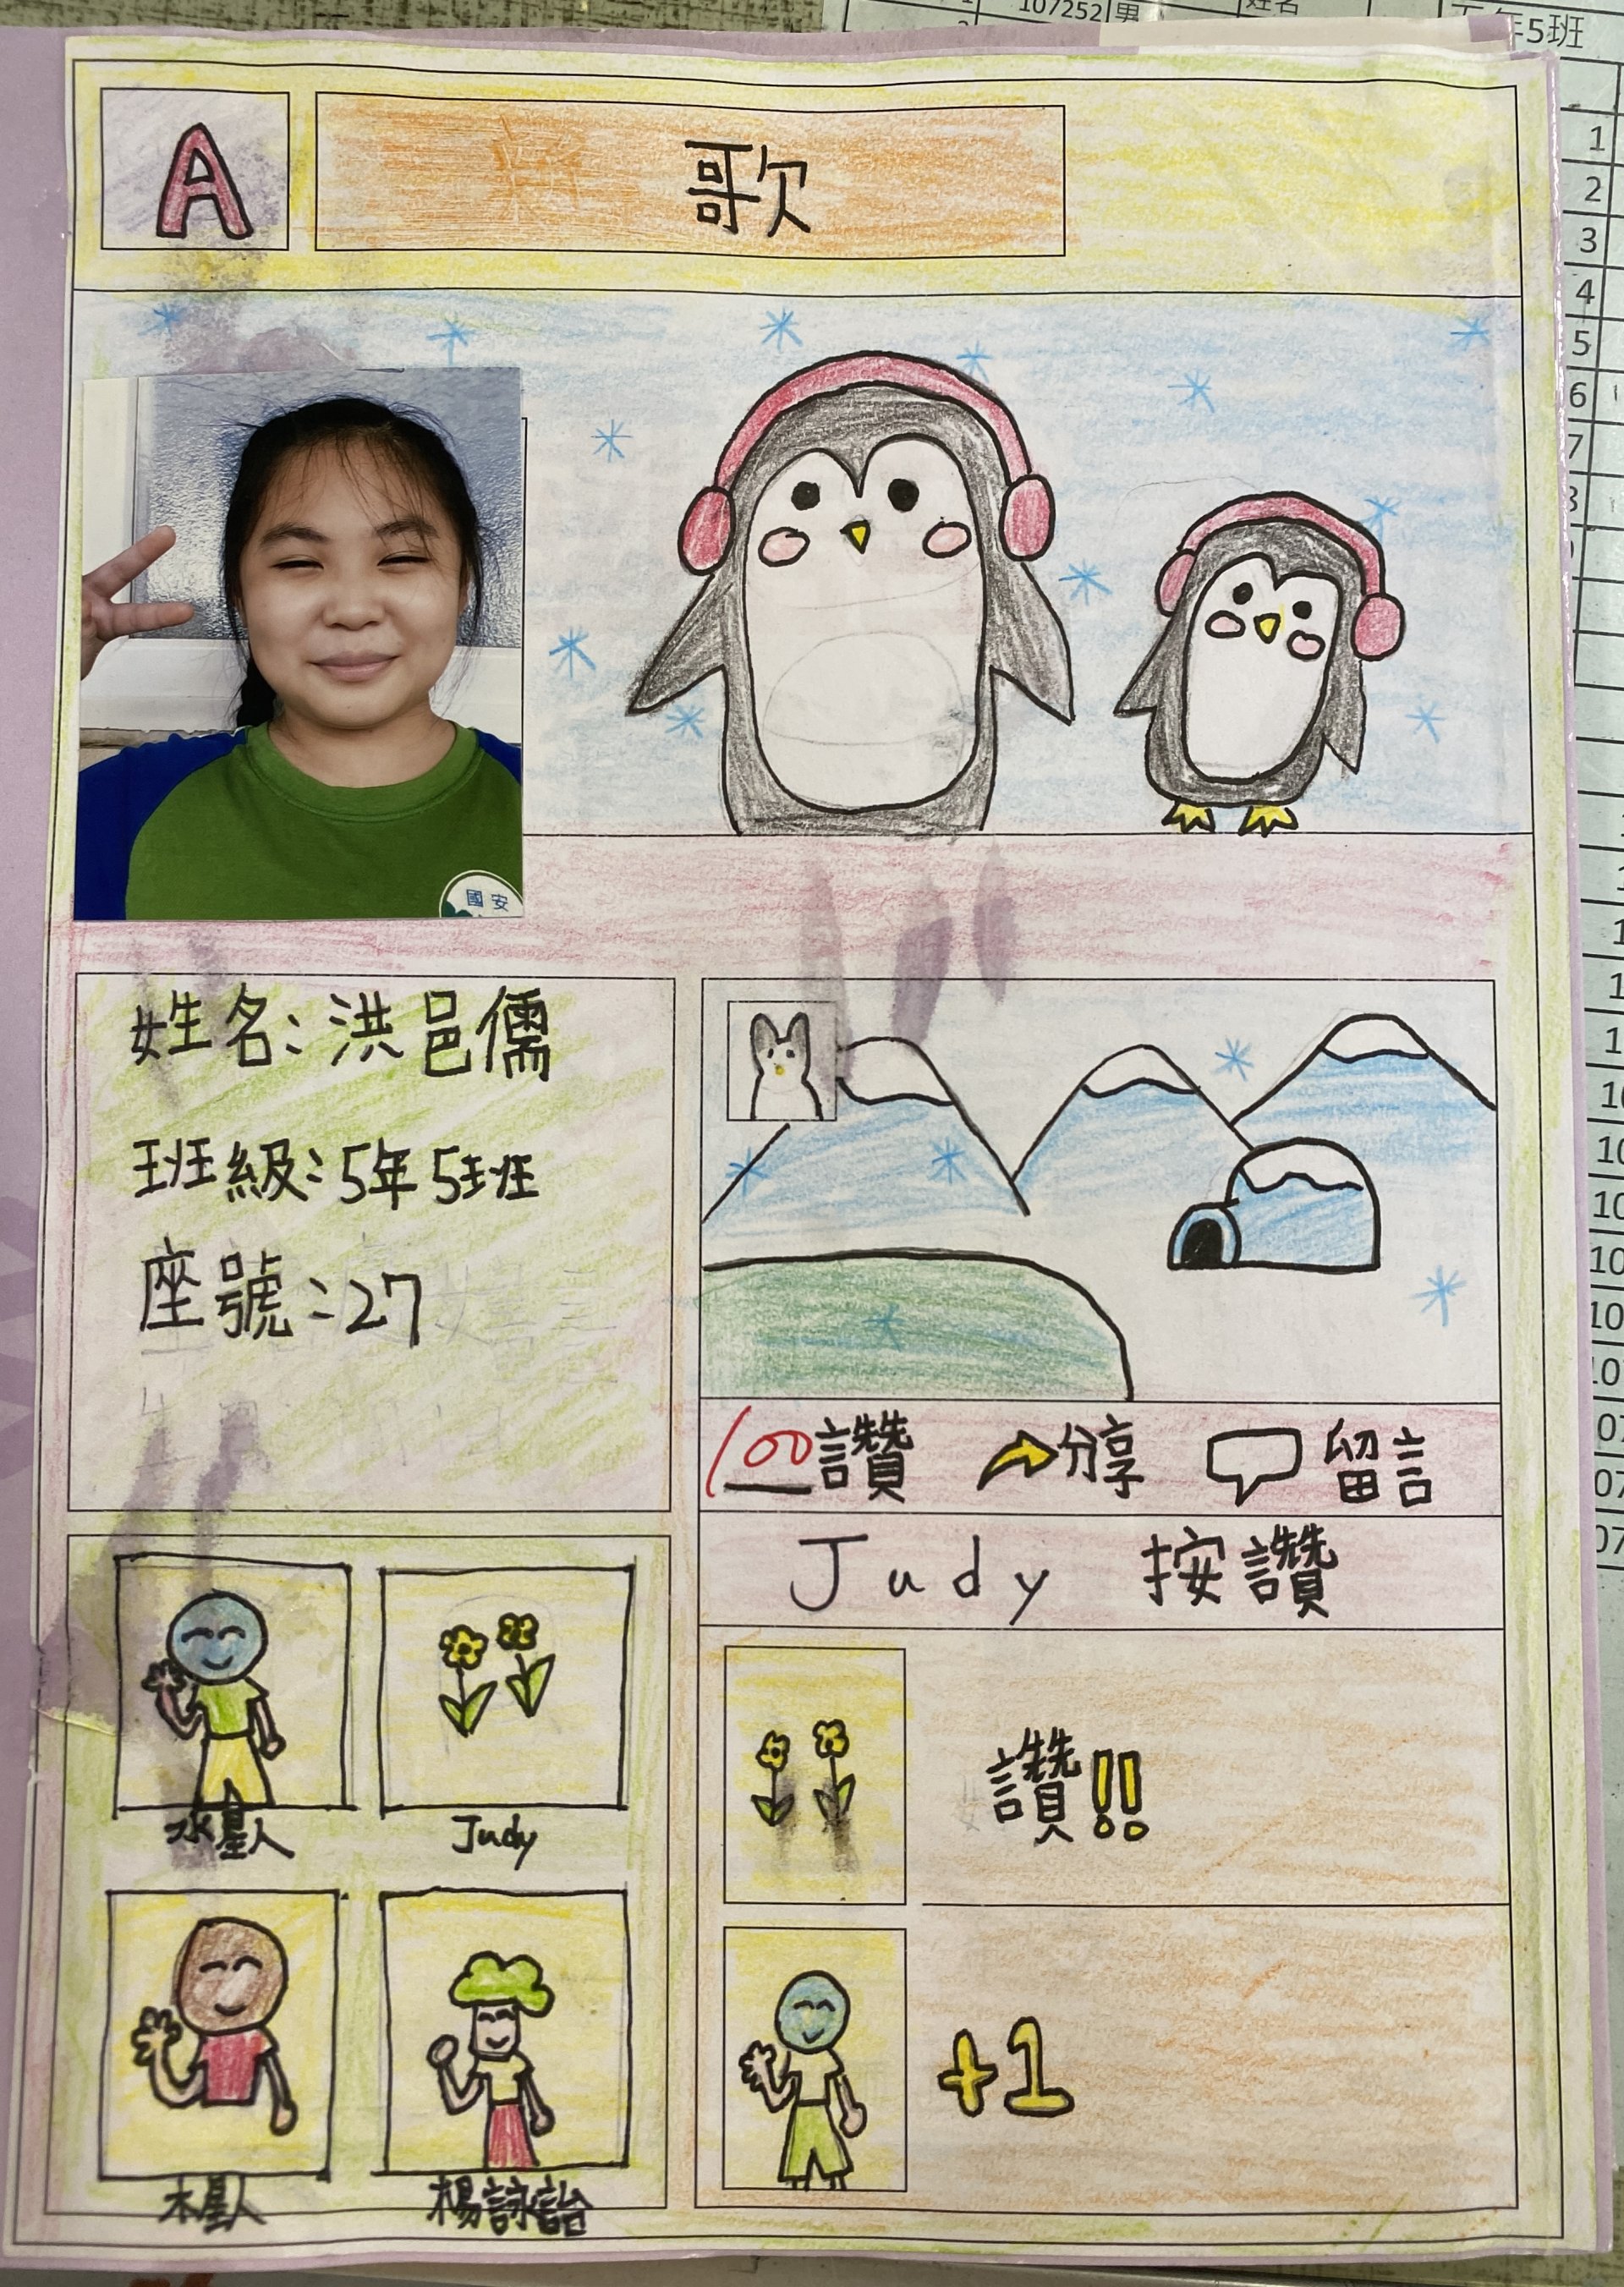 107252 男
姓名
年5班
1
2
3
4
5
6
7
A
歌
國安
姓名:洪邑儒
班級:5年5班
座號:27
100讚 分享 留言
Judy 按讚
水星人 Judy
木星人 楊詠詒
讚!!
+1